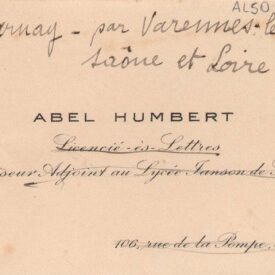 ALSO
urnay - par Varennes-le
Saône et Loire
ABEL HUMBERT
Licencié-ès-Lettres
seur Adjoint au Lycée Janson de
106, rue de la Pompe,